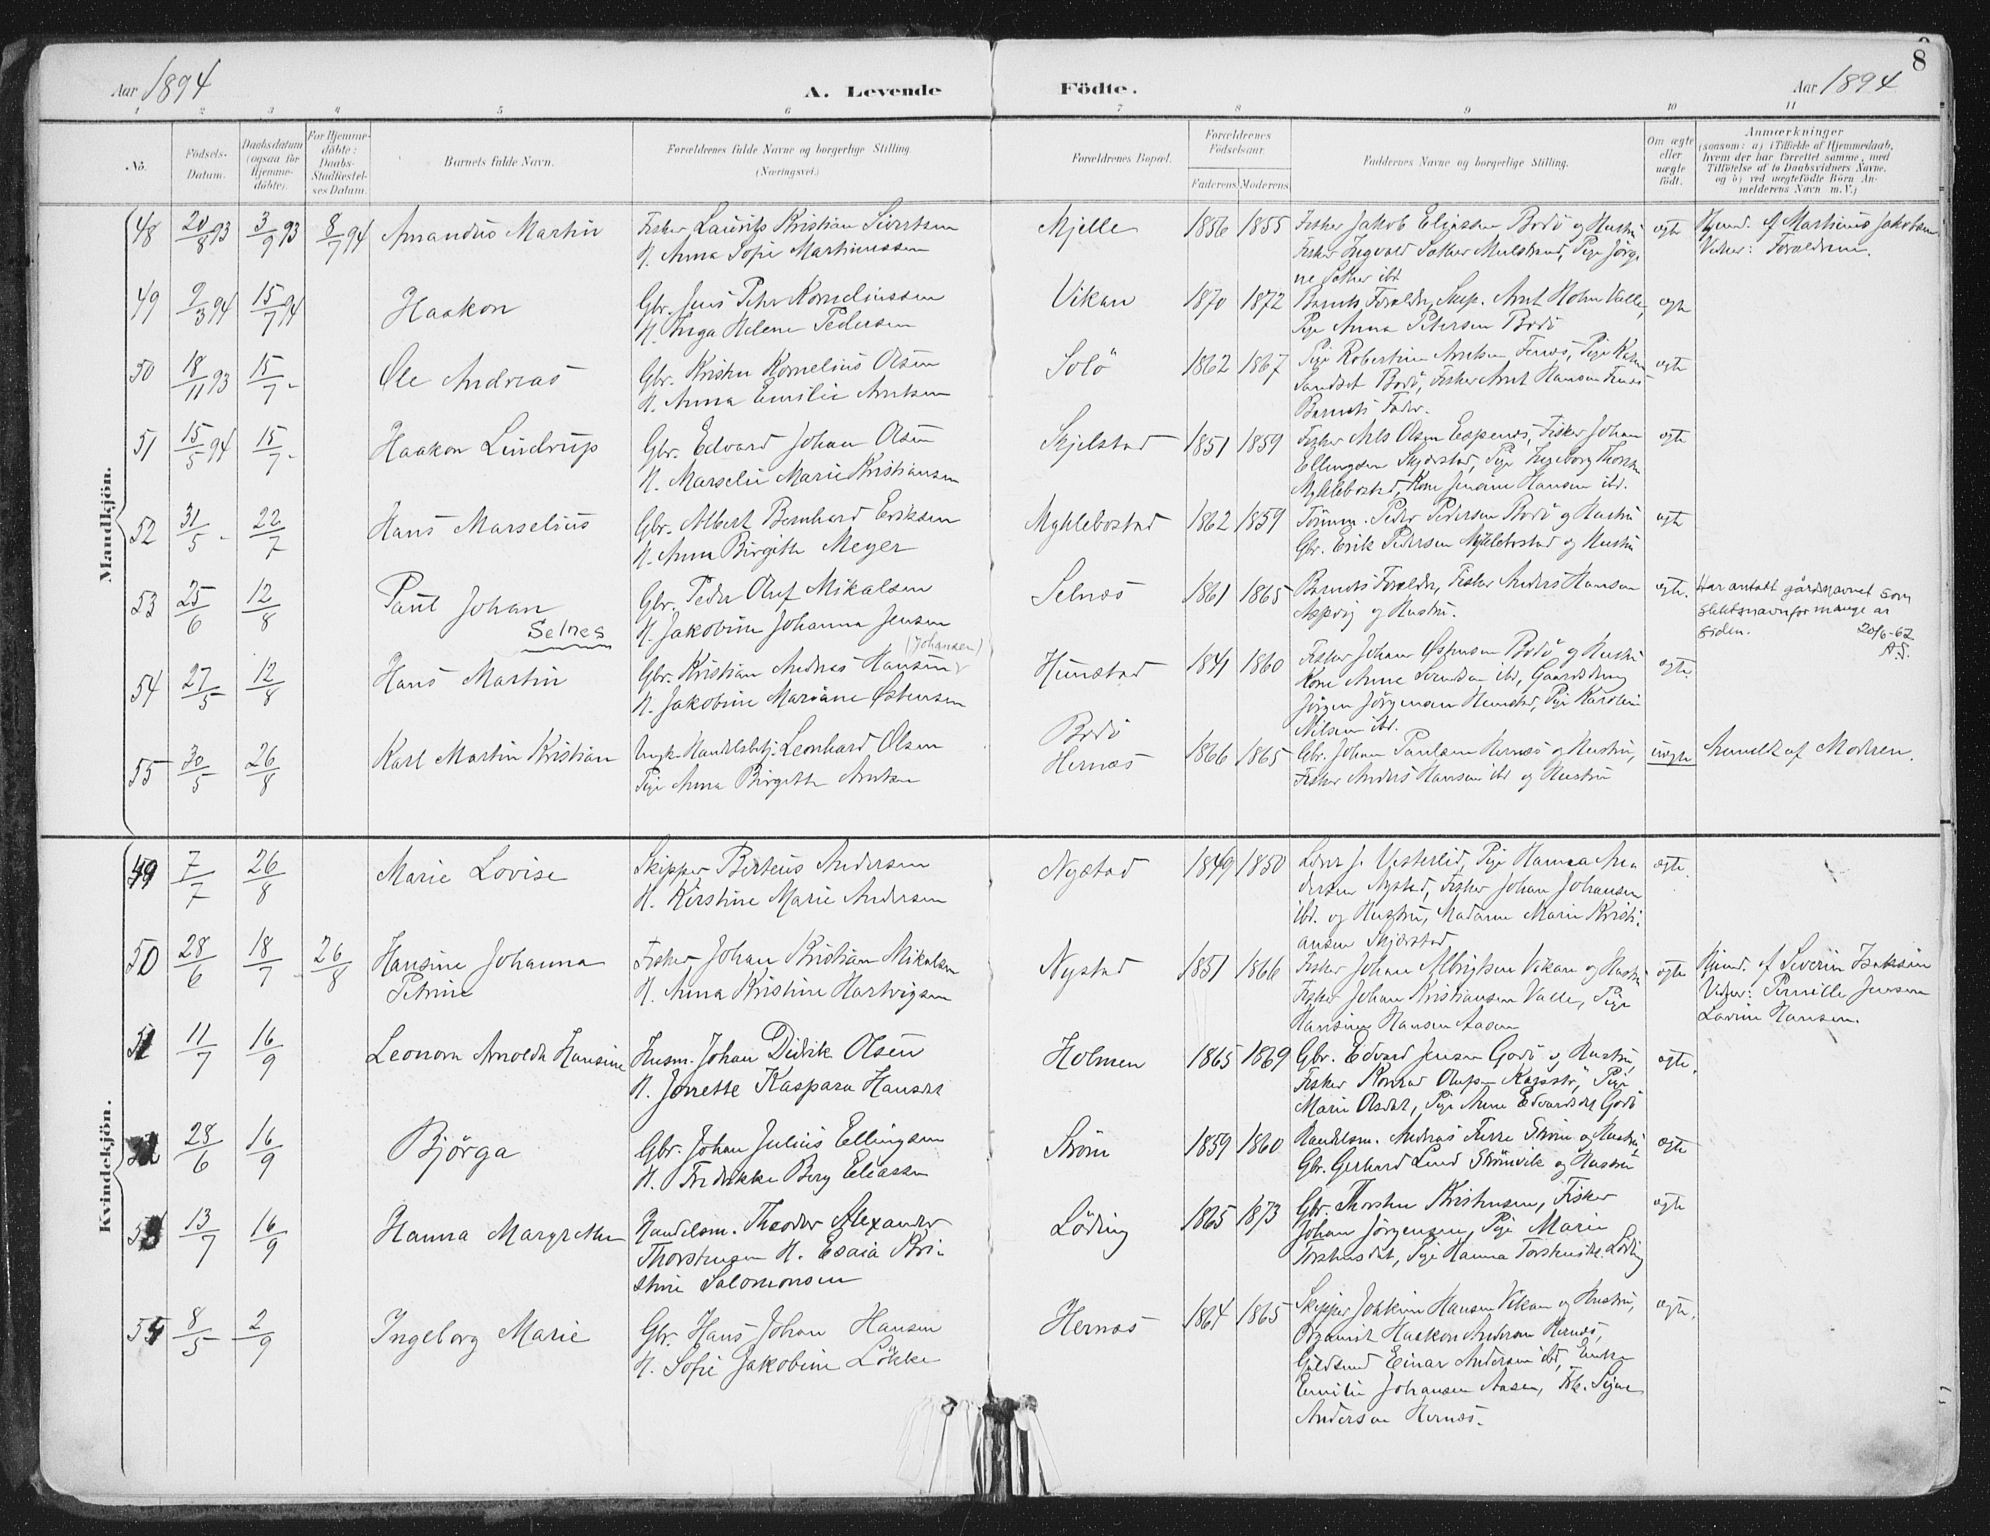 8
Aar 1894
A. Levende Födte.
Aar 1894
1 2 3 4 5 6 7 8 9 10 11
No.
Födsels-
Datum.
Daabsdatum
(ogsaa for
Hjemme-
döbte).
For Hjemme-
döbte:
Daabs-
Stadfæstel-
ses Datum.
Barnets fulde Navn.
Forældrenes fulde Navne og borgerlige Stilling
(Næringsvei.)
Forældrenes Bopæl.
Forældrenes
Födselsaar.
Faderens. Moderens.
Faddernes Navne og borgerlige Stilling.
Om ægte
eller
uægte
födt.
Anmærkninger
(saasom: a) i Tilfælde af Hjemmedaab,
hvem der har forrettet samme, med
Tilföielse af to Daabsvidners Navne,
og b) ved uægtefödte Börn An-
melderens Navn m. V.)
Mandkjön.
48 20/8 93 3/9 93 8/7 94 Amandus Martin
Fisker Laurits Kristian Sivertsen
H. Anna Sofie Martinussen
Mjelle 1856 1855
Fisker Jakob Eliassen Bodö og Hustru
Fisker Ingvald Sæther Mulstrand, Pige Jörgi
ne Sæther ibd
ægte
Hjemd. af Martinus Jakobsen
Vidner: Forældrene.
49 9/3 94 15/7 94 Haakon
Gbr. Jens Peter Korneliussen
H. Inga Helene Pedersen
Vikan 1870 1872
Barnets Forældre, Susp. Arnt Holm Valle,
Pige Anna Petersen Bodö
ægte
50 18/11 93 15/7 - Ole Andreas
Gbr. Kristen Kornelius Olsen
H. Anna Emilie Arntsen
Solö 1862 1867
Pige Robertine Arntsen Fenes, Pige
Sandset Bodö, Fisker Arnt Hansen Fenes
Barnets Fader.
ægte
51 15/5 94 15/7 - Haakon Lindrup
Gbr. Edvard Johan Olsen
H. Marselie Marie Kristiansen
Skjelstad 1851 1859
Fisker Nils Olsen Espenes, Fisker Johan
Ellingsen Skjerstad, Pige Ingeborg
Myklebostad, Kone Jensine Hansen ibd.
ægte
52 31/5 - 22/7 Hans Marselius
Gbr. Albert Bernhard Eriksen
H. Anna Birgitte Meyer
Myklebostad 1862 1859
Tömm. Peder Pedersen Bodö og Hustru
Gbr. Erik Pedersen Myklebostad og Hustru
ægte
53 25/6 12/8 Paul Johan
Selnes
Gbr. Peder Oluf Mikalsen
H. Jakobine Johanna Jensen
Selnæs 1861 1865
Barnets Forældre, Fisker Anders Hansen
Aspvig og Hustru.
ægte.
Har antatt gårdsnavnet som
slektsnavn for mange år
siden. 20/6-62
A.S.
54 27/5 12/8 Hans Martin
(Johansen)
Gbr. Kristian Andreas Hansen
H. Jakobine Mariane Östensen
Hunstad 1841 1860
Fisker Johan Östensen Bodö og Hustru
Kone Anne Svendsen ibd, Gaardsdreng
Jörgen Jörgensen Hunstad, Pige Karoline
Nilsen ibd.
ægte.
55 30/5 26/8 Karl Martin Kristian
Ungk. Handelsbetj. Leonhard Olsen
Pige Anna Birgitte Arntsen
Bodö
Hernæs 1866 1865
Gbr. Johan Paulsen Hernæs og Hustru,
Fisker Anders Hansen ibd og Hustru
uægte
Anmeldt af Moderen.
Kvindekjön.
49 7/7 26/8 Marie Lovise
Skipper Berteus Andersen
H. Kirstine Marie Andersen
Nystad 1849 1850
Lærer J. Vesterlid, Pige Hanna An
dersen Nystad, Fisker Johan Johansen
ibd. og Hustru, Madame Marie Kristi-
ansen Skjerstad
ægte.
50 28/6 18/7 26/8 Hansine Johanna
Petrine
Fisker Johan Kristian Mikalsen
H. Anna Kristine Hartvigsen
Nystad 1851 1866
Fisker Johan Albrigtsen Vikan og Hustru
Fisker Johan Kristiansen Valle, Pige
Hansine Hansen Aasen
ægte
Hjemd. af Severin Isaksen
Vidner: Pernille Jensen
Lavine Hansen.
51 11/7 16/9 Leonora Arnolda Hansine
Husm. Johan Didrik Olsen
H. Jorrette Kaspara Hansdat
Holmen 1865 1869
Gbr. Edvard Jensen Godö og Hustru,
Fisker Konrad Olufsen, Pige
Marie Olsdat, Pige Anne Edvardsdat Godö
ægte.
52 28/6 16/9 Bjørga
Gbr. Johan Julius Ellingsen
H. Fredrikke Berg Eliassen
Ström 1859 1860
Handelsm. Andreas Ström og Hustru
Gbr. Gerhard Lund Strömvik og Hustru
ægte
53 13/7 16/9 Hanna Margrethe
Handelsm. Theodor Alexander
Thorstensen H. Esaia Kri-
stine Salomonsen
Löding 1865 1873
Gbr. Thorsten Kristensen, Fisker
Johan Jörgensen, Pige Marie
Torstensdat, Pige Hanna Löding
ægte
54 8/5 2/9 Ingeborg Marie
Gbr. Hans Johan Hansen
H. Sofie Jakobine Lökke
Hernæs 1864 1865
Skipper Joakim Hansen Vikan og Hustru,
Organist Haakon Andersen Hernæs,
Guldsmed Einar Andersen ibd, Enke
Emilie Johansen Aasen, Frk. Signe
Andersen Hernæs.
ægte.